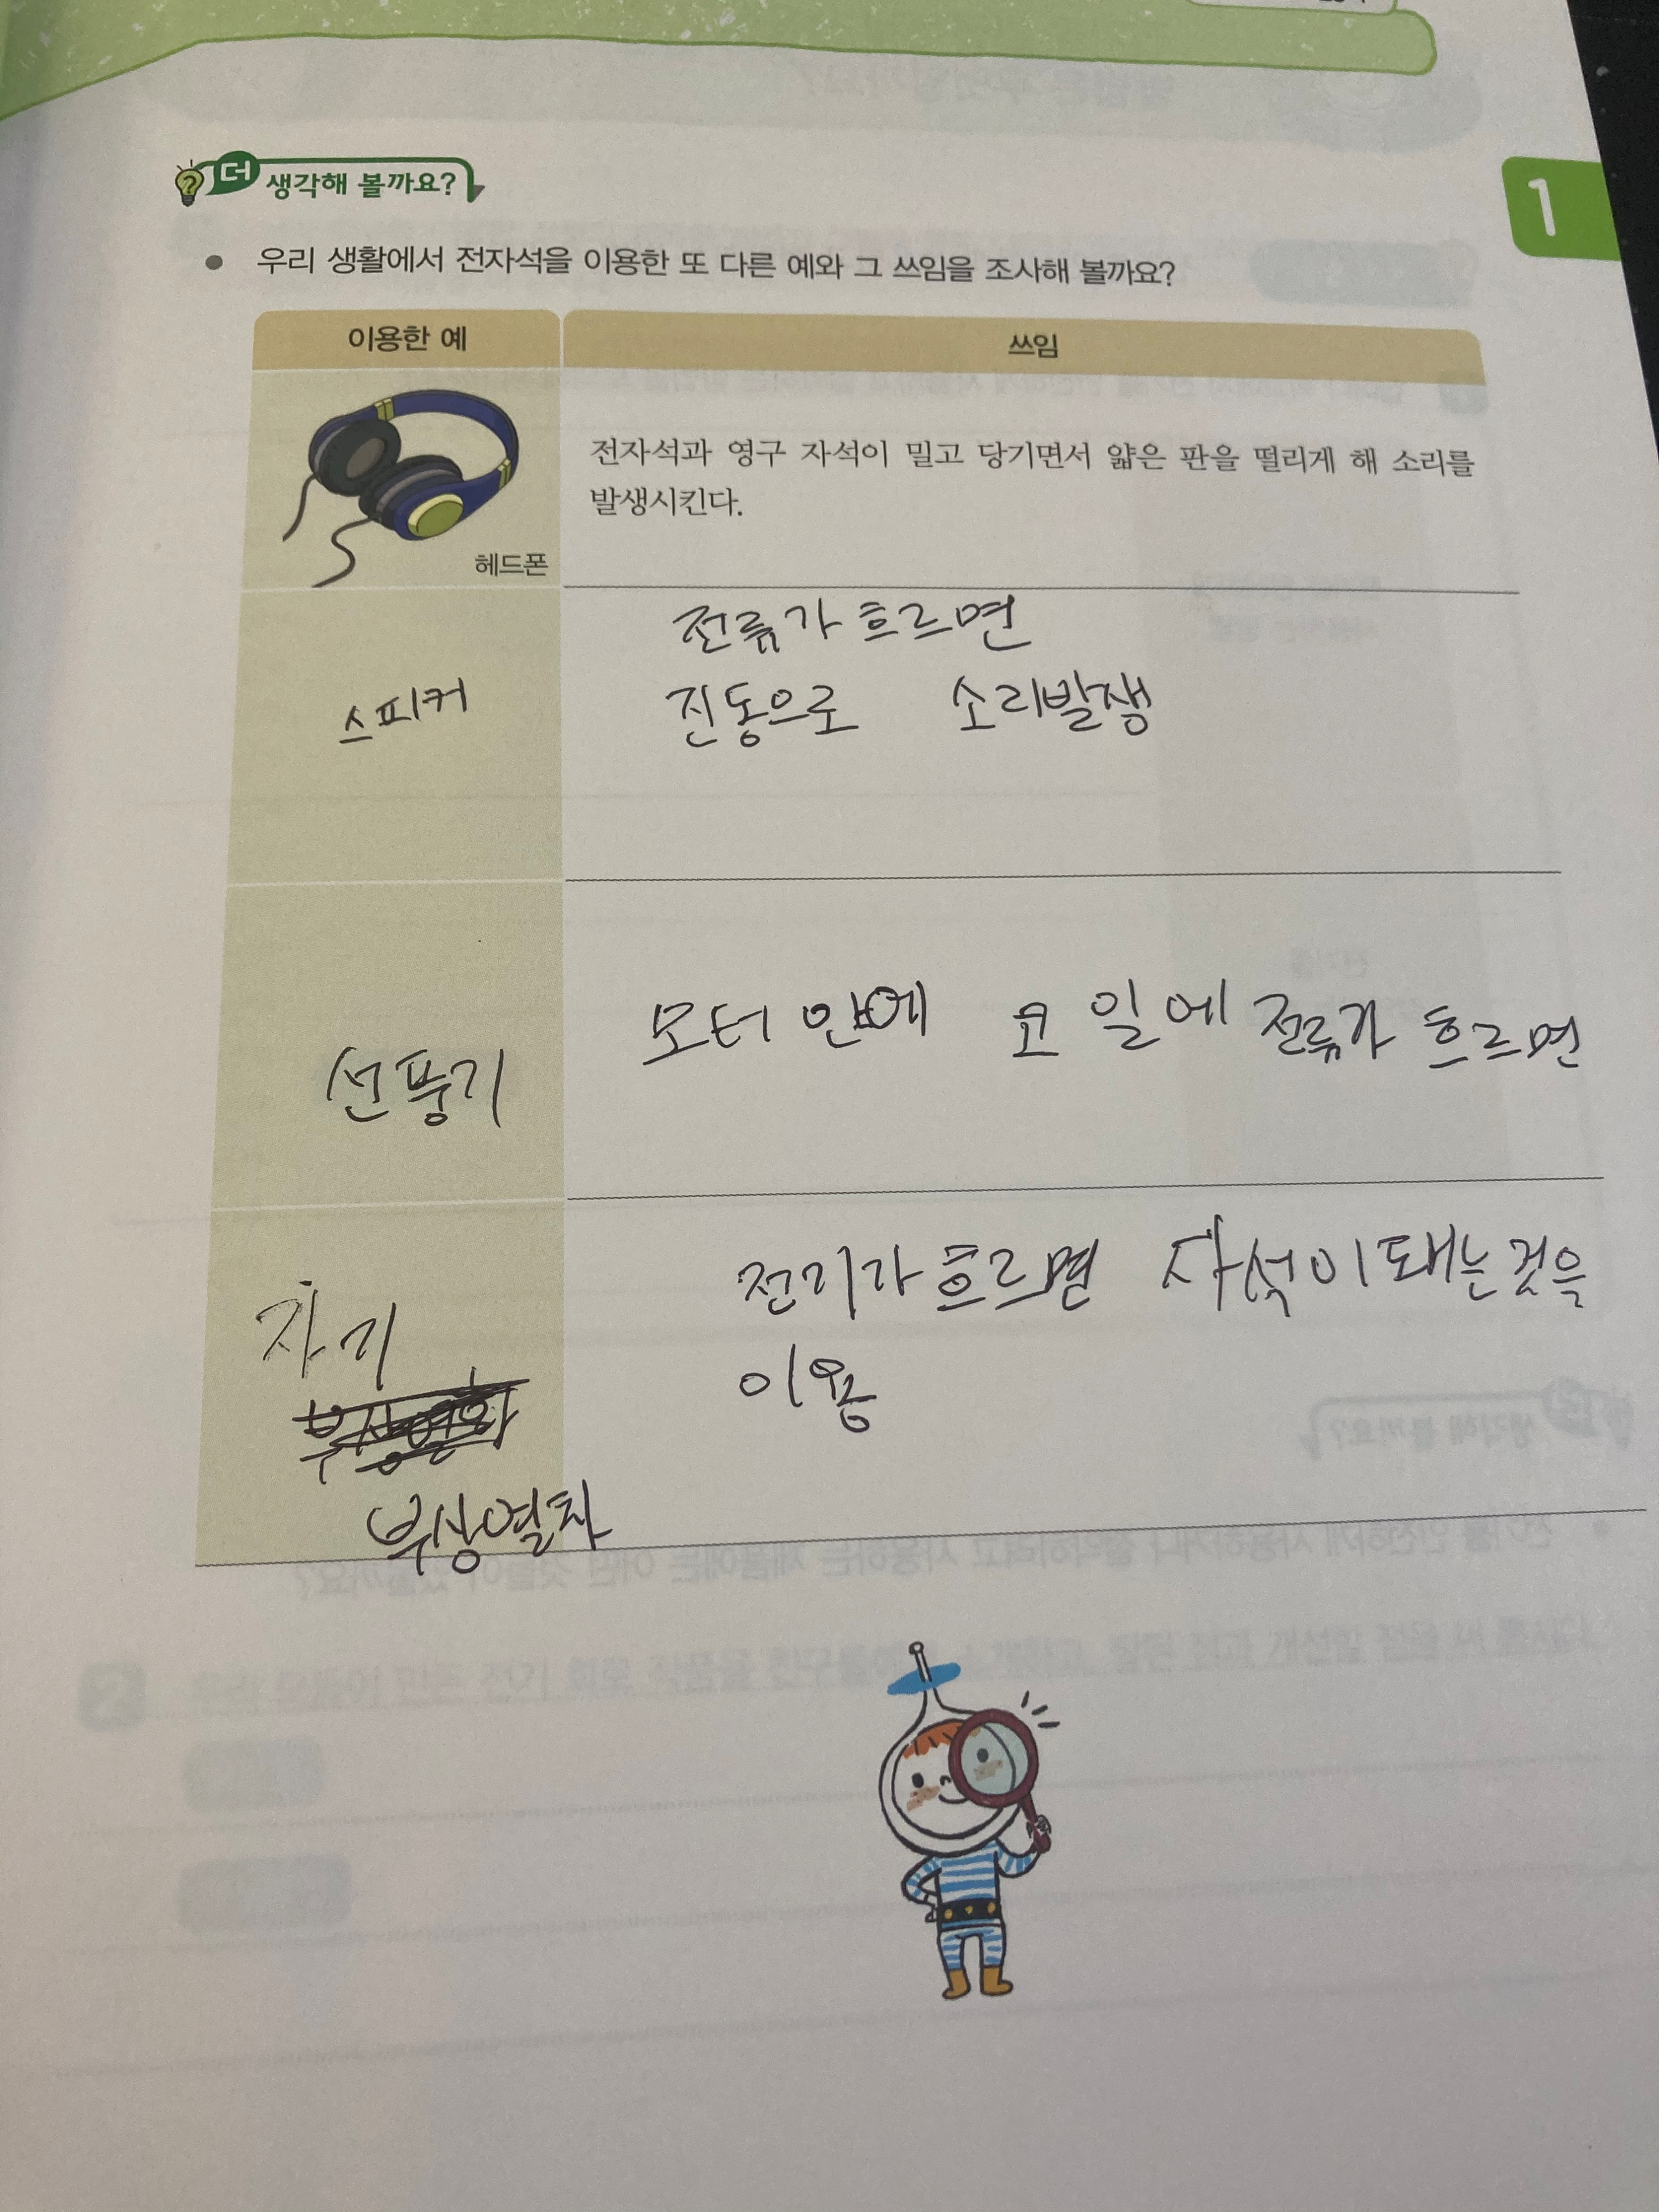 더 생각해 볼까요?
1
● 우리 생활에서 전자석을 이용한 또 다른 예와 그 쓰임을 조사해 볼까요?
이용한 예
쓰임
헤드폰
전자석과 영구 자석이 밀고 당기면서 얇은 판을 떨리게 해 소리를
발생시킨다.
스피커
전류가 흐르면
진동으로 소리발생
선풍기
모터 안에 코일에 전류가 흐르면
자기
부상열차
전기가 흐르면 자석이 돼는것을
이용